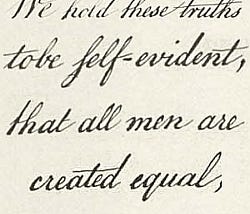 We hold these truths
tobe ſelf-evident,
that all men are
created equal,